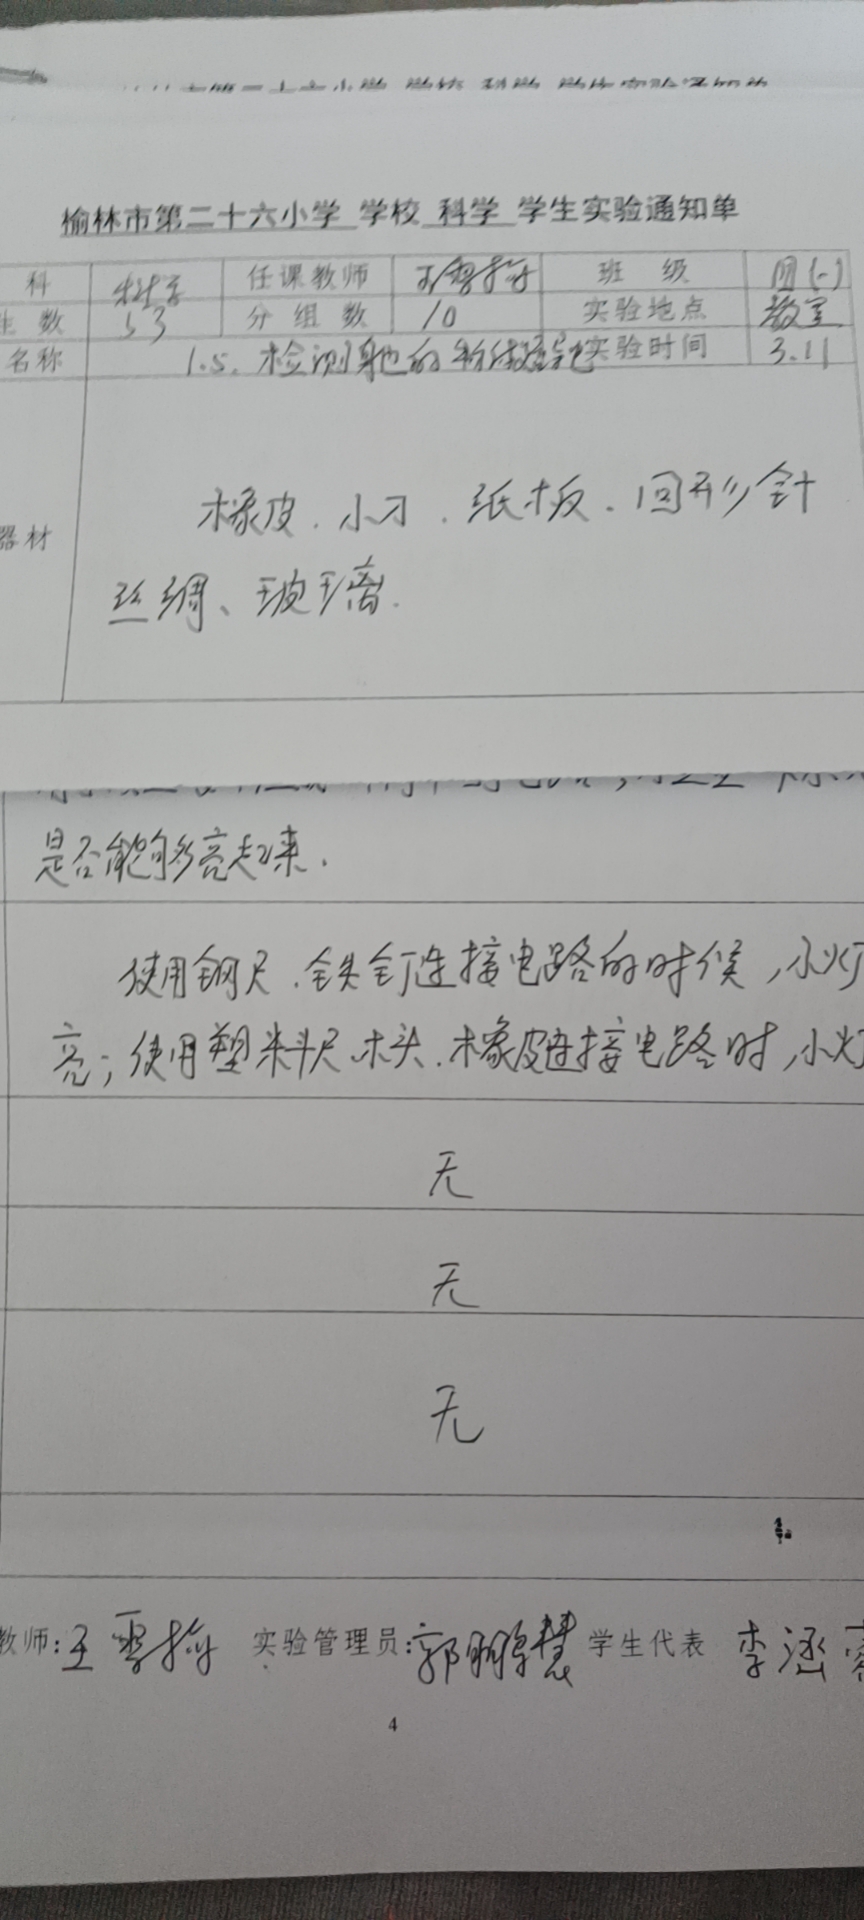 榆林市第二十六小学 学校 科学 学生实验通知单
科 科学 任课教师 王雪梅 班 级 四(一)
生 数 53 分 组 数 10 实验地点 教室
名称 1.5. 检测 的 实验时间 3.11
器材 橡皮、小刀、纸板、回形针
丝绸、玻璃.
是否能够亮起来.
使用钢尺、铁钉连接电路的时候,小灯
亮;使用塑料尺、木头、橡皮连接电路时,小灯
无
无
无
教师:王雪梅 实验管理员:郭鹏慧 学生代表 李涵
4